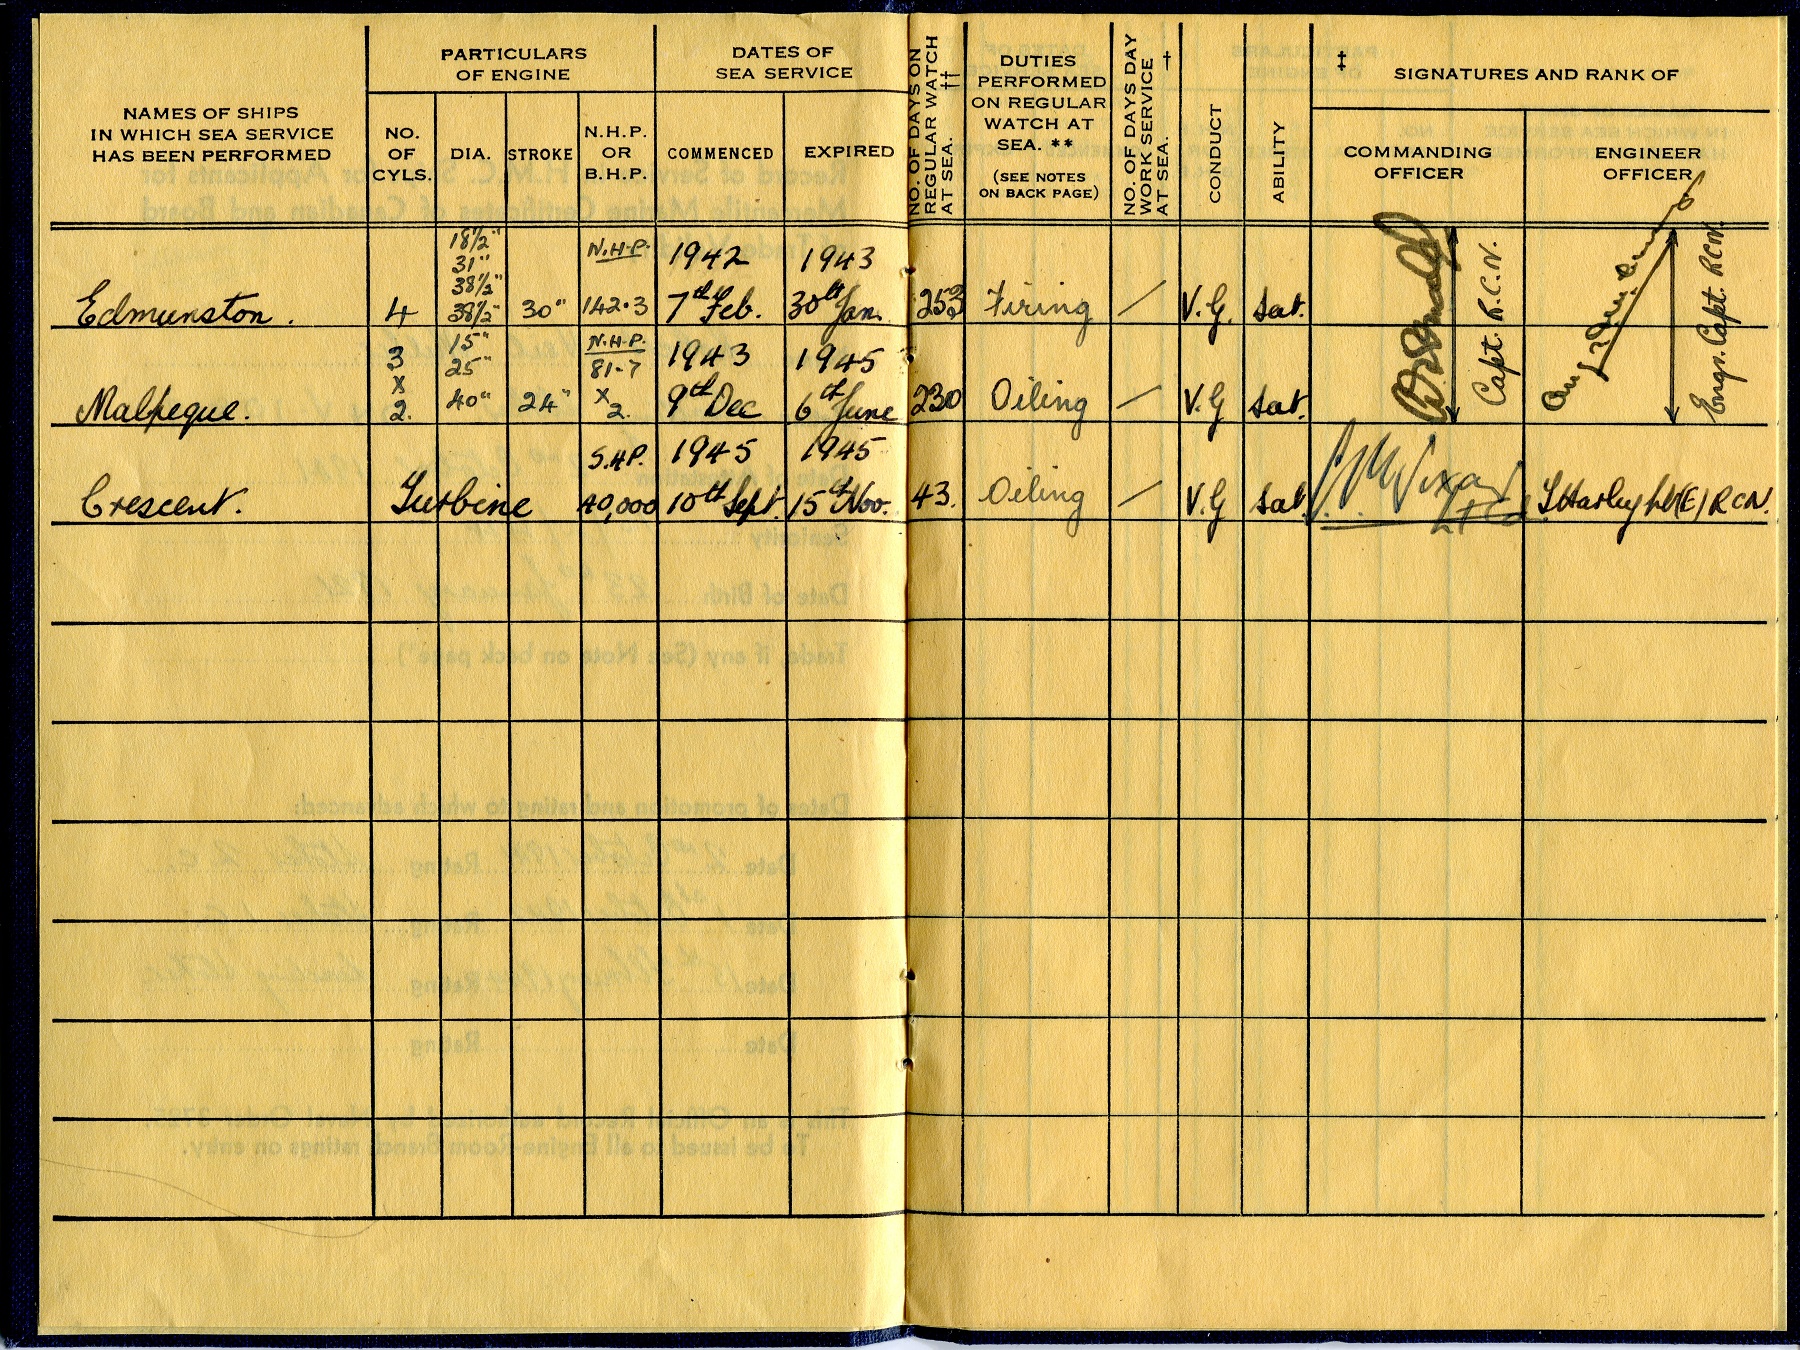 NAMES OF SHIPS
IN WHICH SEA SERVICE
HAS BEEN PERFORMED
PARTICULARS
OF ENGINE
NO.
OF
CYLS.
DIA.
STROKE
N.H.P.
OR
B.H.P.
DATES OF
SEA SERVICE
COMMENCED
EXPIRED
NO. OF DAYS ON
REGULAR WATCH
AT SEA. ††
DUTIES
PERFORMED
ON REGULAR
WATCH AT
SEA. **
(SEE NOTES
ON BACK PAGE)
NO. OF DAYS DAY
WORK SERVICE
AT SEA. †
CONDUCT
ABILITY
‡
SIGNATURES AND RANK OF
COMMANDING
OFFICER
ENGINEER
OFFICER
18½"
31"
38½"
N.H.P. 1942 1943
Edmunston. 4 38½" 30" 142.3 7th Feb. 30th Jan. 253 Firing / V.G. Sat.
Capt. R.C.N.
Engr. Capt. RCN.
3 15" N.H.P. 1943 1945
x 25" 81.7
Malpeque. 2. 40" 24" x 2. 9th Dec 6th June 230 Oiling / V.G Sat.
S.H.P. 1945 1945
Crescent. Turbine 40,000 10th Sept. 15th Nov. 43. Oiling / V.G Sat.
Lt(E) RCN.